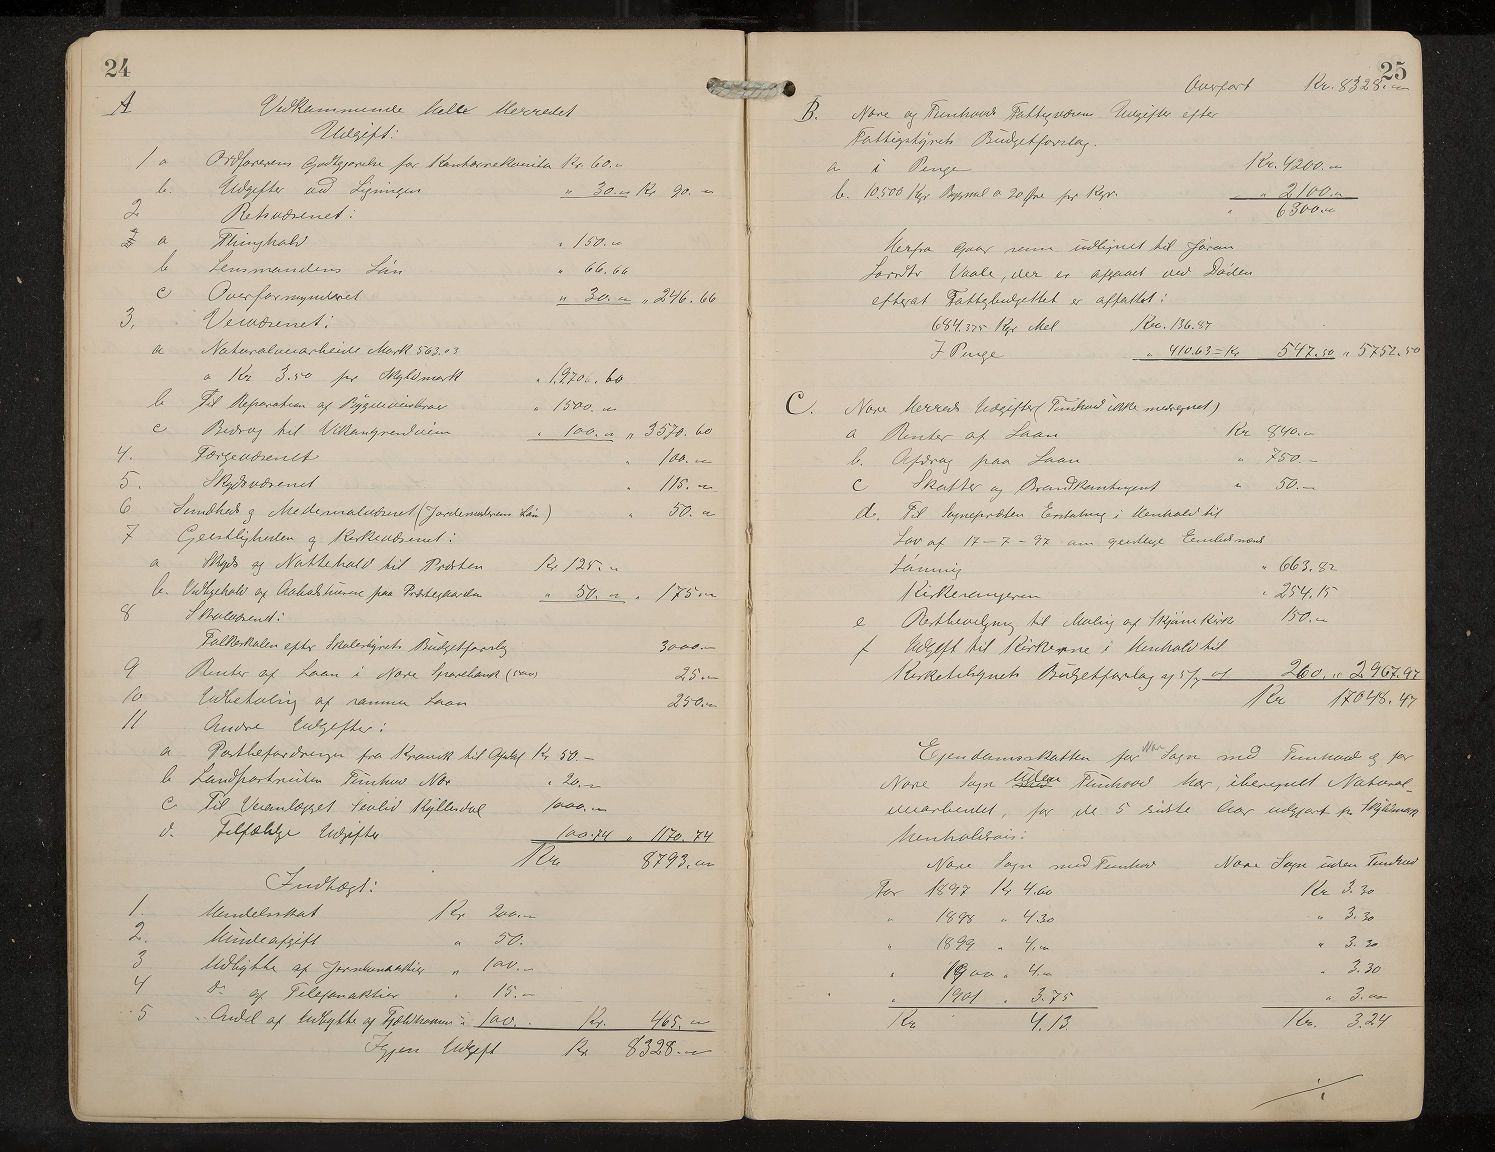 24
A Vedkommende Hele Herredet
Udgift:
1 a Ordførerens Godtgjørelse for Kontorrekvisita Kr 60.„
b. Udgifter ved Ligningen „ 30.„ Kr 90.„
2 Retsvæsenet:
a Thinghold „ 150.„
b Lensmandens Løn „ 66.66
c Overformynderiet „ 30.„ „ 246.66
3. Veivæsenet:
a Naturalveiarbeide Mark 563.03
a Kr 3.50 pr Skyldmark „ 1970.60
b Til Reparation af Bygdeveisbroer „ 1500.„
c Bidrag til „ 100.„ „ 3570.60
4. Færgevæsenet „ 100.„
5. Skydsvæsenet „ 115.„
6 Sundheds og Medicinalvæsenet (Jordemoderens Løn) „ 50.„
7 Geistligheden og Kirkevæsenet:
a Skyds og Nattehold til Præsten Kr 125.„
b. Vedligehold og paa Præstegaarden „ 50.„ „ 175.„
8 Skolevæsenet:
Folkeskolen efter Skolestyrets Budgetforslag 3000.„
9 Renter af Laan i Nore Sparebank (500) 25.„
10 Udbetaling af samme Laan 250.„
11 Andre Udgifter:
a Postbefordringen fra Kravik til Opdal Kr 50.–
b Landpostruten Tunhovd Nore „ 20.„
c Til Veianlægget Sevlid Kyllendal 1000.„
d. Tilfældige Udgifter 100.74 „ 1170.74
Kr 8793.„
Indtægt:
1. Handelsskat Kr 200.„
2. Hundeafgift „ 50.
3 Udbytte af Jernbaneaktier „ 100.„
4 do af Telefonaktier „ 15.„
5 Andel af Udbytte af „ 100. Kr. 465.„
Igjen Udgift Kr 8328.„
25
Overført Kr. 8328.„
B. Nore og Tunhovds Fattigvæsens Udgifter efter
Fattigstyrets Budgetforslag.
a i Penge Kr. 4200.„
b. 10.500 Kgr Bygmel a 20 Øre pr Kgr. „ 2100.„
„ 6300.„
Herfra gaar som udlignet til Jøran
Vaale, der er afgaaet ved Døden
efterat Fattigbudgettet er affattet:
684.375 Kgr Mel Kr. 136.87
I Penge „ 410.63 = Kr 547.50 „ 5752.50
C. Nore Herreds Udgifter (Tunhovd ikke medregnet)
a Renter af Laan Kr 840.„
b. Afdrag paa Laan „ 750.–
c Skatter og Brandkontingent „ 50.–
d. Til Sognepræsten Erstatning i Henhold til
Lov af 17-7-97 om geistlige Embedsmænds
Lønning „ 663.82
Kirkesangeren „ 254.15
e Restbevilgning til Maling af Skjønne Kirke 150.„
f Udgift til Kirkerne i Henhold til
Kirketilsynets Budgetforslag af 5/7 01 260. „ 2967.97
Kr 17048.47
Ejendomsskatten for Nore Sogn med Tunhovd og for
Nore Sogn uden Tunhovd har, iberegnet Natural-
veiarbeidet, for de 5 sidste Aar udgjort pr Skyldmark
henholdsvis:
Nore Sogn med Tunhovd Nore Sogn uden Tunhovd
For 1897 Kr 4.60 Kr 3.30
„ 1898 „ 4.30 „ 3.30
„ 1899 „ 4.„ „ 3.30
„ 1900 „ 4.„ „ 3.30
„ 1901 „ 3.75 „ 3.00
Kr 4.13 Kr. 3.24